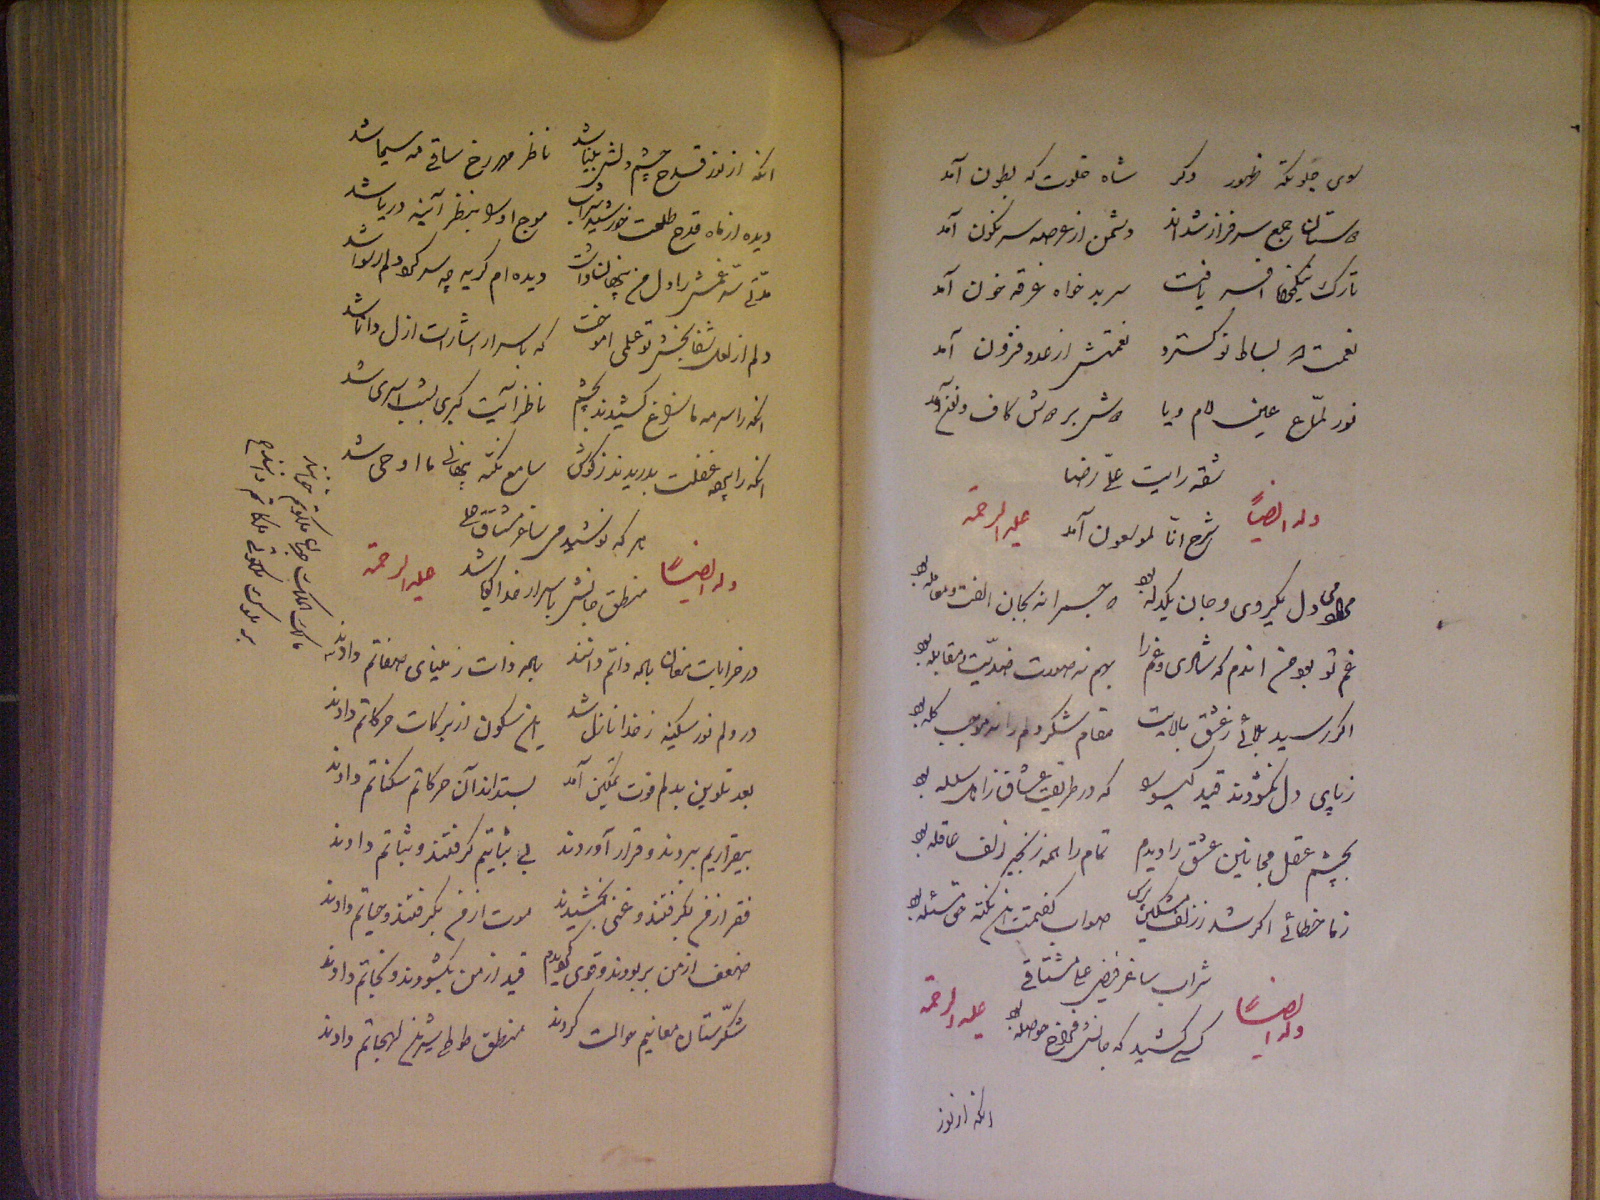 سوی جلوتکه ظهور دگر شاه خلوت که بطون آمد
دوستان جمع سرفراز شدند دشمن از عرصه سرنگون آمد
تارک نیکخواه افسر یافت سر بدخواه غرقه خون آمد
نعمت الله بساط نو گسترد نعمتش از عدد فزون آمد
نور لماع عین و لام و یا دوش بر دوش کاف و نون آمد
شقه رایت علی رضا
شرح انا لموسعون آمد
وله ایضاً علیه الرحمه
دل یکروی و جان یکدله بود
غم تو بود من اندم که شادی و غم را بهم نه صورت ضدیت و مقابله بود
اگر رسید بلائی ز عشق بالایت مقام شکر دلم را نه موجب گله بود
ز پای دل نگشودند قید گیسو را که در طریقت عشاق سلسله بود
بچشم عقل مجانین عشق را دیدم تمام را همه زنجیر زلف عاقله بود
ز ما خطائی اگر شد ز زلف مشکین صواب گفتمت این نکته حق مسئله بود
شراب ساغر فیض علی مشتاقی
کسی کشید که جانش فراخ حوصله بود
وله ایضاً علیه الرحمه
انکه از نور
انکه از نور قدح چشم دلش بینا شد ناظر مهر رخ ساقی مه سیما شد
دیده از ماه قدح طلعت خورشید شراب موج او را بنظر آینه دریا شد
مدتی سر غمش را دل من پنهان داشت دیده ام گریه چو سر کرد دلم رسوا شد
دلم از لعل شفابخش تو علمی اموخت که باسرار اشارات ازل دانا شد
انکه را سرمه ما زاغ کشیدند بچشم ناظر آیت کبری بشب اسری شد
انکه را پنبه غفلت بدریدند ز گوش سامع نکته پنهانی ما اوحی شد
هر که نوشید می ساغر مشتاق علی
منطق جانش باسرار خدا گویا شد
وله ایضاً علیه الرحمه
در خرابات مغان باده ذاتم دادند باده ذات ز مینای صفاتم دادند
در دلم نور سکینه ز خدا نازل شد این سکون از برکات حرکاتم دادند
بعد تلوین بدلم قوت تمکین آمد بستدند آن حرکاتم سکناتم دادند
بیقراریم ببردند و قرار آوردند بی ثباتیم گرفتند و ثباتم دادند
فقر از من بگرفتند و غنی بخشیدند موت از من بگرفتند و حیاتم دادند
ضعف از من بربودند و قوی گردیدم قید از من بگشودند و نجاتم دادند
شکرستان معانیم حوالت کردند منطق طوطی شیرین لهجاتم دادند
مالک الملک ملکوتم خوانند
بر ملوک ملکوتی ملکاتم دادند